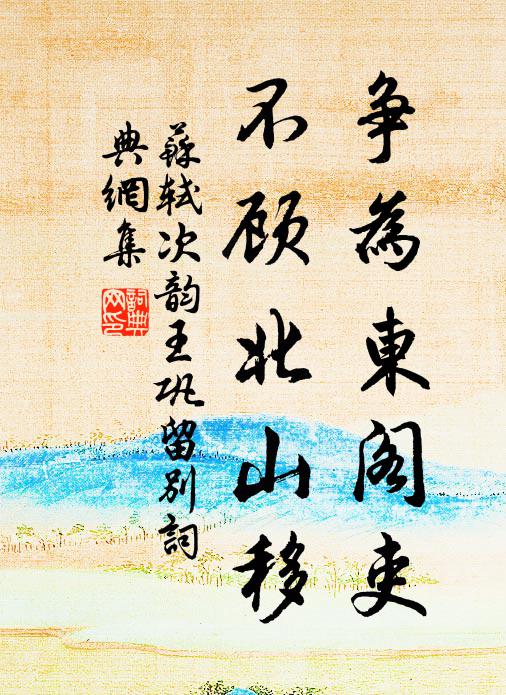 争為東阁吏
不顾北山移
蘇轼次韵王巩留别詞
典網集
詞典网印